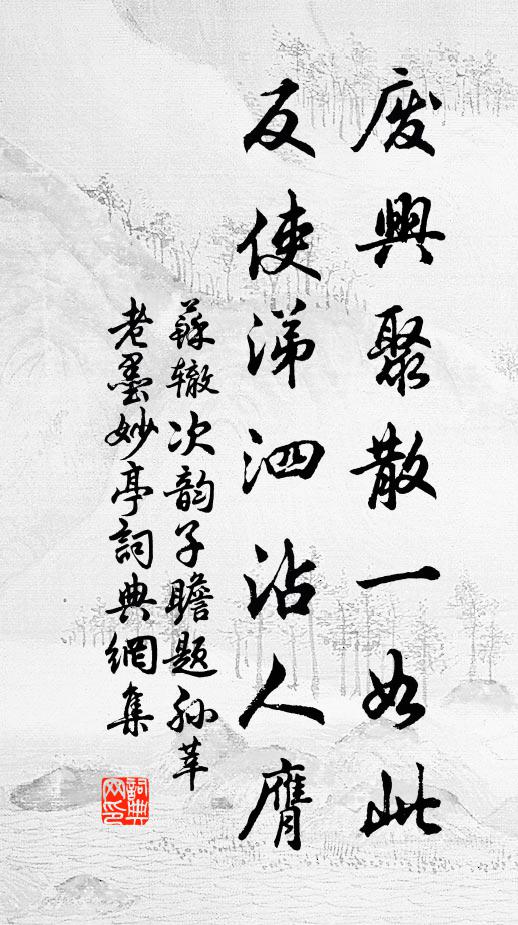 废興聚散一如此
反使涕泗沾人膺
蘇辙次韵子瞻题孙莘
老墨妙亭詞典網集
詞典网印